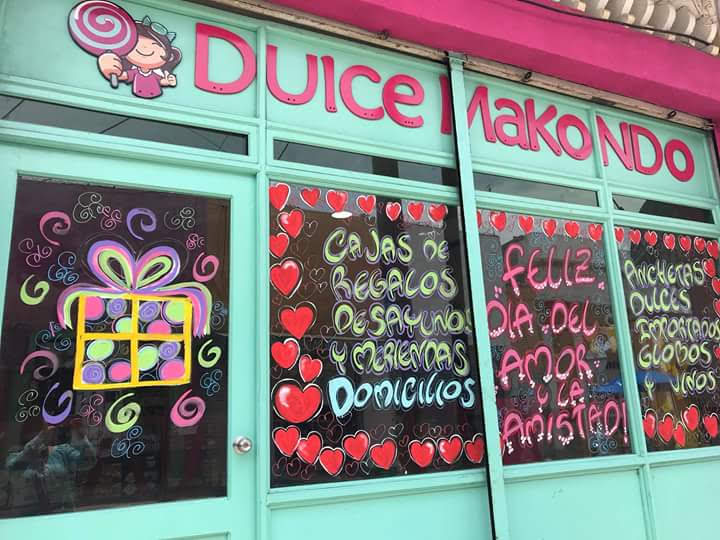 Dulce Makondo
CAJAS DE
REGALOS
DESAYUNOS
Y MERIENDAS
DOMICILIOS
FELIZ
DIA DEL
AMOR
Y LA
AMISTAD!
ANCHETAS
DULCES
IMPORTADOS
GLOBOS
Y VINOS